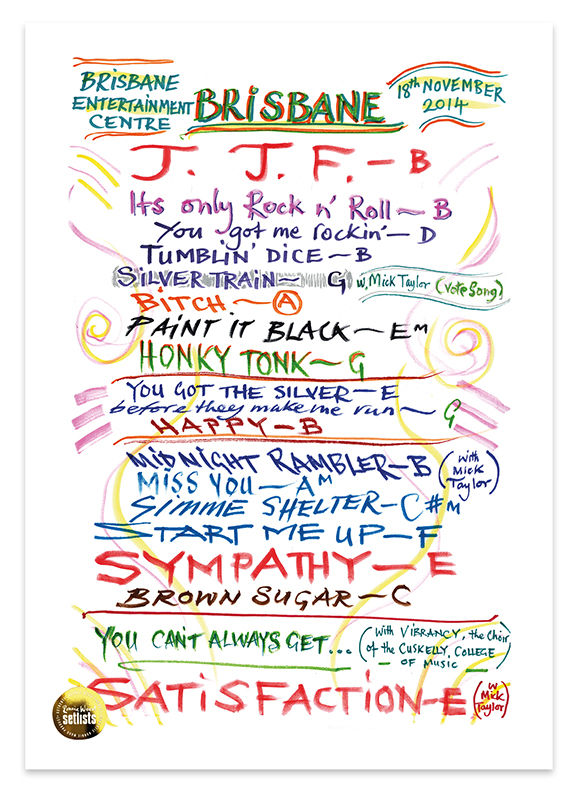 BRISBANE
ENTERTAINMENT
CENTRE
BRISBANE
18th NOVEMBER
2014
J. J. F. - B
Its only Rock n' Roll ~ B
You got me rockin' — D
TUMBLIN' DICE ~ B
SILVER TRAIN ~ G w, Mick Taylor (Vote Song)
BITCH ~ A
PAINT IT BLACK ~ Em
HONKY TONK ~ G
YOU GOT THE SILVER — E
before they make me run ~ G
HAPPY - B
MIDNIGHT RAMBLER - B (with Mick Taylor)
MISS YOU — Am
GIMME SHELTER - C#m
START ME UP - F
SYMPATHY — E
BROWN SUGAR — C
YOU CAN'T ALWAYS GET... (with VIBRANCY, the Choir
of the CUSKELLY, COLLEGE
OF MUSIC)
SATISFACTION - E (w Mick Taylor)
Ronnie Wood
setlists